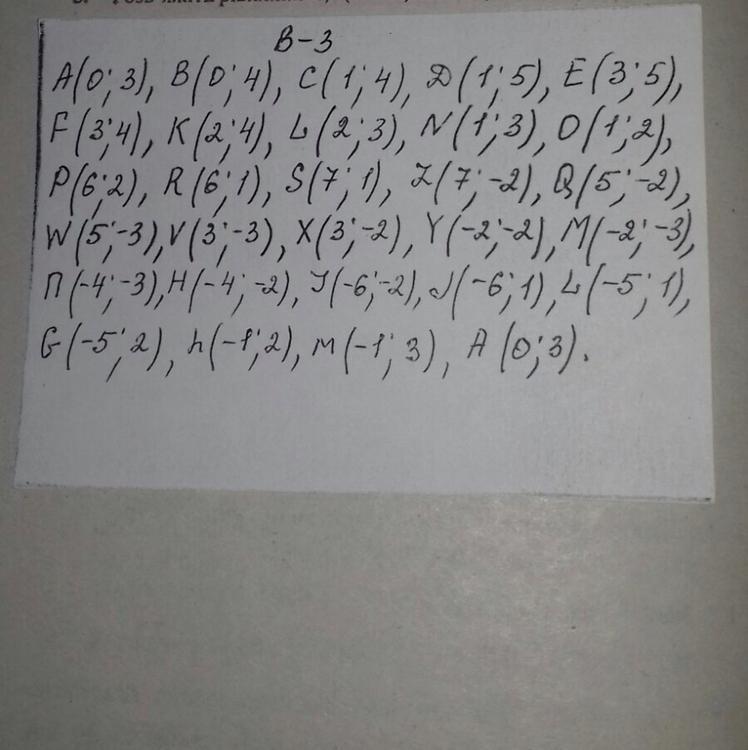 В-3
A(0; 3), B(0; 4), C(1; 4), D(1; 5), E(3; 5),
F(3; 4), K(2; 4), L(2; 3), N(1; 3), O(1; 2),
P(6; 2), R(6; 1), S(7; 1), Z(7; -2), Q(5; -2),
W(5; -3), V(3; -3), X(3; -2), Y(-2; -2), M(-2; -3),
П(-4; -3), H(-4; -2), J(-6; -2), J(-6; 1), L(-5; 1),
G(-5; 2), h(-1; 2), м(-1; 3), A(0; 3).